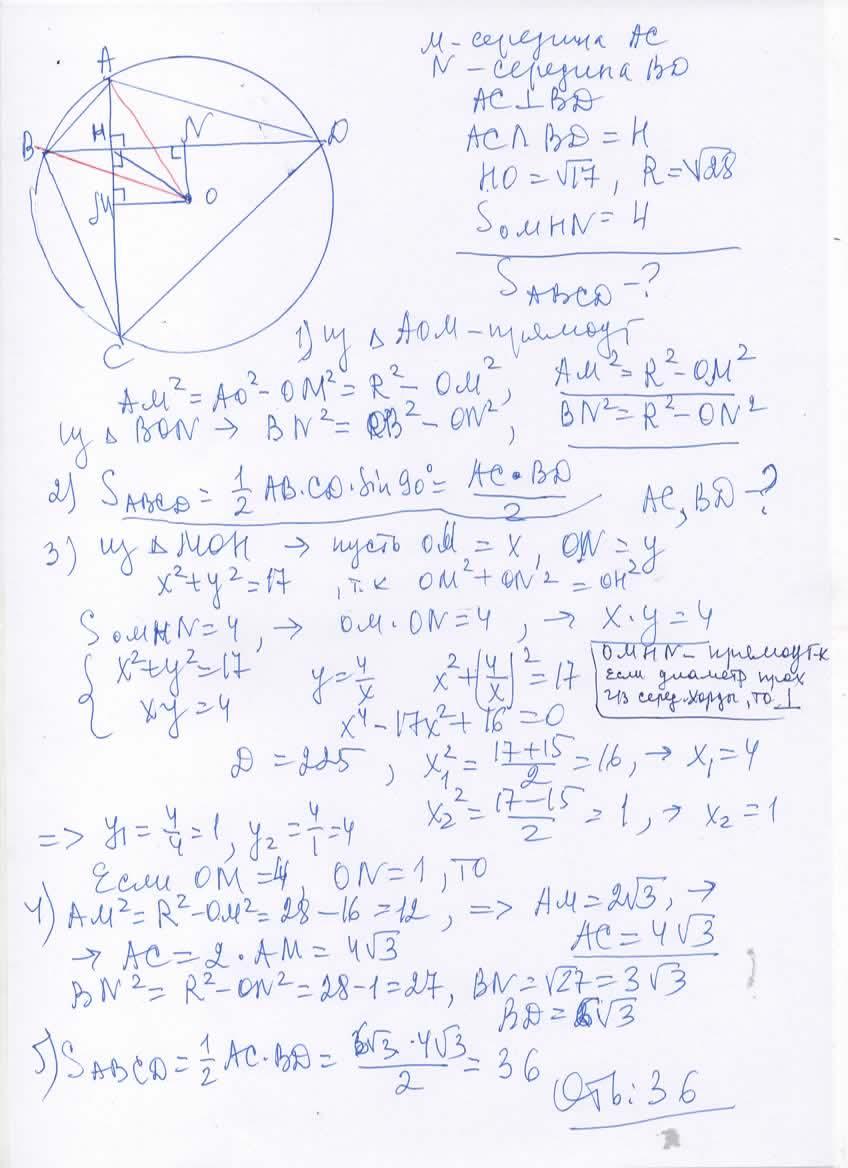 A
B
H
N
D
M
O
C
M - середина AC
N - середина BD
AC ⊥ BD
AC ∩ BD = H
HO = √17, R = √28
S OMHN = 4
S ABCD - ?
1) из △ AOM - прямоуг
AM² = AO² - OM² = R² - OM², AM² = R² - OM²
из △ BON → BN² = OB² - ON², BN² = R² - ON²
2) S ABCD = 1/2 AB·CD·Sin 90° = AC·BD/2
AC, BD - ?
3) из △ MOH → пусть OM = x, ON = y
x² + y² = 17, т.к OM² + ON² = OH²
S OMHN = 4, → OM·ON = 4, → x·y = 4
{ x² + y² = 17 y = 4/x x² + (4/x)² = 17
xy = 4 x⁴ - 17x² + 16 = 0
OMHN - прямоуг-к
Если диаметр прох
ч/з серед. хорды, то ⊥
D = 225, x₁² = (17+15)/2 = 16, → x₁ = 4
x₂² = (17-15)/2 = 1, → x₂ = 1
=> y₁ = 4/4 = 1, y₂ = 4/1 = 4
Если OM = 4, ON = 1, то
4) AM² = R² - OM² = 28 - 16 = 12, => AM = 2√3, →
→ AC = 2·AM = 4√3 AC = 4√3
BN² = R² - ON² = 28 - 1 = 27, BN = √27 = 3√3
BD = 6√3
5) S ABCD = 1/2 AC·BD = 6√3·4√3/2 = 36
Отв: 36